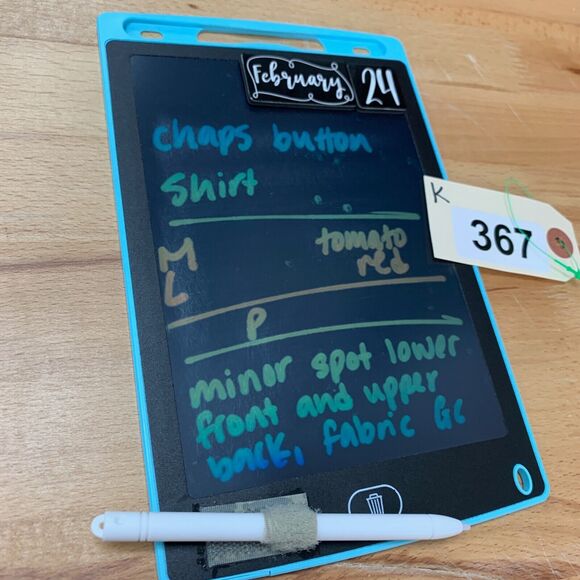 February 24
chaps button
shirt
M tomato
L red
P
minor spot lower
front and upper
back, fabric GC
K
367